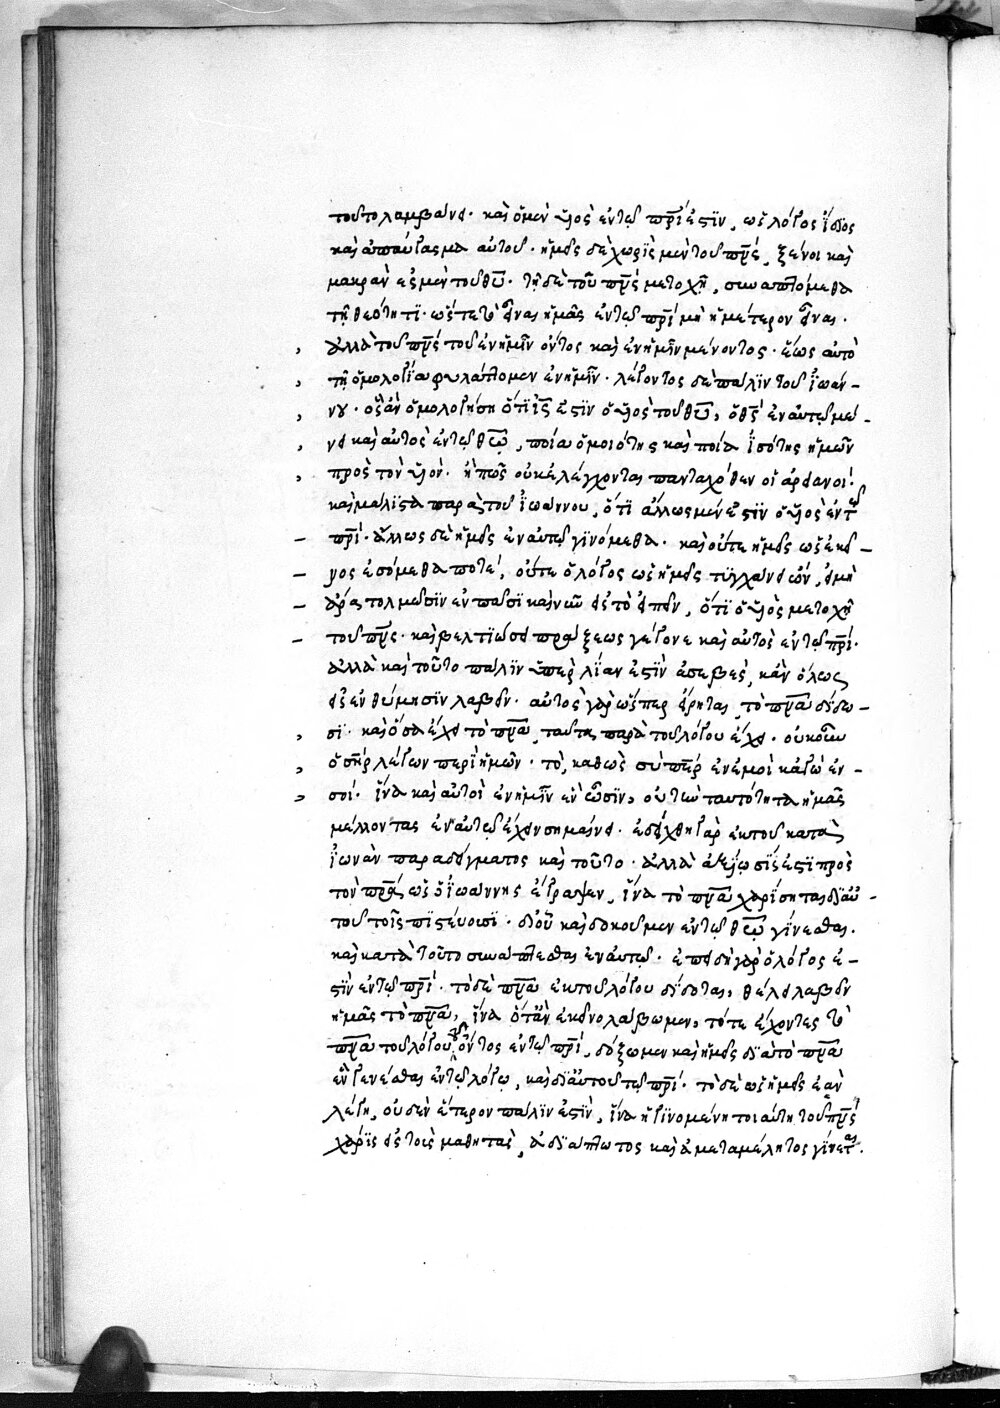 τοῦτο λαμβάνει· καὶ ὁ μὲν υἱὸς ἐν τῷ πρί ἐστϊν, ὡς λόγος ἴδϊος
καὶ ἀπαύγασμα αὐτοῦ· ἡμεῖς δὲ χωρὶς μὲν τοῦ πνς, ξένοι καὶ
μακρὰν ἐσμὲν τοῦ θυ· τῇ δὲ τοῦ πνς μετοχῇ, συναπτόμεθα
τῇ θεότητϊ· ὥστε τὸ εἶναι ἡμᾶς ἐν τῷ πρὶ μὴ ἡμέτερον εἶναι·
ἀλλὰ τοῦ πνς τοῦ ἐν ἡμῖν ὄντος καὶ ἐν ἡμῖν μένοντος· ἕως αὐτὸ
τῇ ὁμολογίᾳ φυλάττομεν ἐν ἡμῖν· λέγοντος δὲ πάλϊν τοῦ ϊωάν-
νου· ὃς ἂν ὁμολογήσῃ ὅτϊ ις ἐστϊν ὁ υἱὸς τοῦ θυ, ὁ θς ἐν αὐτῷ μέ-
νει καὶ αὐτὸς ἐν τῷ θω, ποία ὁμοιότης καὶ ποία ϊσότης ἡμῶν
πρὸς τὸν υἱόν· ἢ πῶς οὐκ ἐλέγχονται πανταχόθεν οἱ ἀρειανοί·
καὶ μάλϊστα παρὰ τοῦ ϊωάννου, ὅτϊ ἄλλως μέν ἐστϊν ὁ υἱὸς ἐν τῷ
πρί· ἄλλως δὲ ἡμεῖς ἐν αὐτῷ γϊνόμεθα· καὶ οὔτε ἡμεῖς ὡς ἐκεῖ-
νος ἐσόμεθά ποτε, οὔτε ὁ λόγος ὡς ἡμεῖς τϋγχάνει ὤν, εἰ μὴ
ἄρα τολμῶσϊν ἐν πᾶσϊ καὶ νῦν εἰς τὸ εἰπεῖν, ὅτϊ ὁ υἱὸς μετοχῇ
τοῦ πνς· καὶ βελτϊώσει πράξεως γέγονε καὶ αὐτὸς ἐν τῷ πρί·
ἀλλὰ καὶ τοῦτο πάλϊν ὑπὲρ λίαν ἐστϊν ἀσεβὲς, κἂν ὅλως
εἰς ἐνθύμησϊν λαβεῖν· αὐτὸς γὰρ ὥσπερ εἴρηται, τὸ πνα δίδω-
σϊ· καὶ ὅσα ἔχει τὸ πνα, ταῦτα παρὰ τοῦ λόγου ἔχει· οὐκοῦν
ὁ σηρ λέγων περὶ ἡμῶν· τό, καθὼς σὺ περ ἐν ἐμοὶ κἀγὼ ἐν
σοί· ἵνα καὶ αὐτοὶ ἐν ἡμῖν ἓν ὦσϊν, οὐ τὴν ταυτότητα ἡμᾶς
μέλλοντας ἐν αὐτῷ ἔχειν σημαίνει· ἐδείχθη γὰρ ἐκ τοῦ κατὰ
ϊωνὰν παραδείγματος καὶ τοῦτο· ἀλλὰ ἀξίωσίς ἐστϊ πρὸς
τὸν πρα ὡς ὁ ϊωάννης ἔγραψεν, ἵνα τὸ πνα χαρίσηται δϊ' αὐ-
τοῦ τοῖς πϊστεύουσϊ· δϊ' οὗ καὶ δοκοῦμεν ἐν τῷ θω γίνεσθαι·
καὶ κατὰ τοῦτο συνάπτεσθαι ἐν αὐτῷ· ἐπειδὴ γὰρ ὁ λόγος ἐ-
στϊν ἐν τῷ πρί· τὸ δὲ πνα ἐκ τοῦ λόγου δίδοται, θέλει λαβεῖν
ἡμᾶς τὸ πνα, ἵνα ὅταν ἐκεῖνο λάβωμεν, τότε ἔχοντες τὸ
πνα τοῦ λόγου τοῦ ὄντος ἐν τῷ πρί, δόξωμεν καὶ ἡμεῖς δϊὰ τὸ πνα
ἓν γενέσθαι ἐν τῷ λόγῳ, καὶ δϊ' αὐτοῦ τῷ πρί· τὸ δὲ ὡς ἡμεῖς ἐὰν
λέγῃ, οὐδὲν ἕτερον πάλϊν ἐστϊν, ἵνα ἡ γϊνομένη τοιαύτη τοῦ πνς
χάρϊς εἰς τοὺς μαθητὰς, ἀδϊάπτωτος καὶ ἀμεταμέλητος γίνεται·